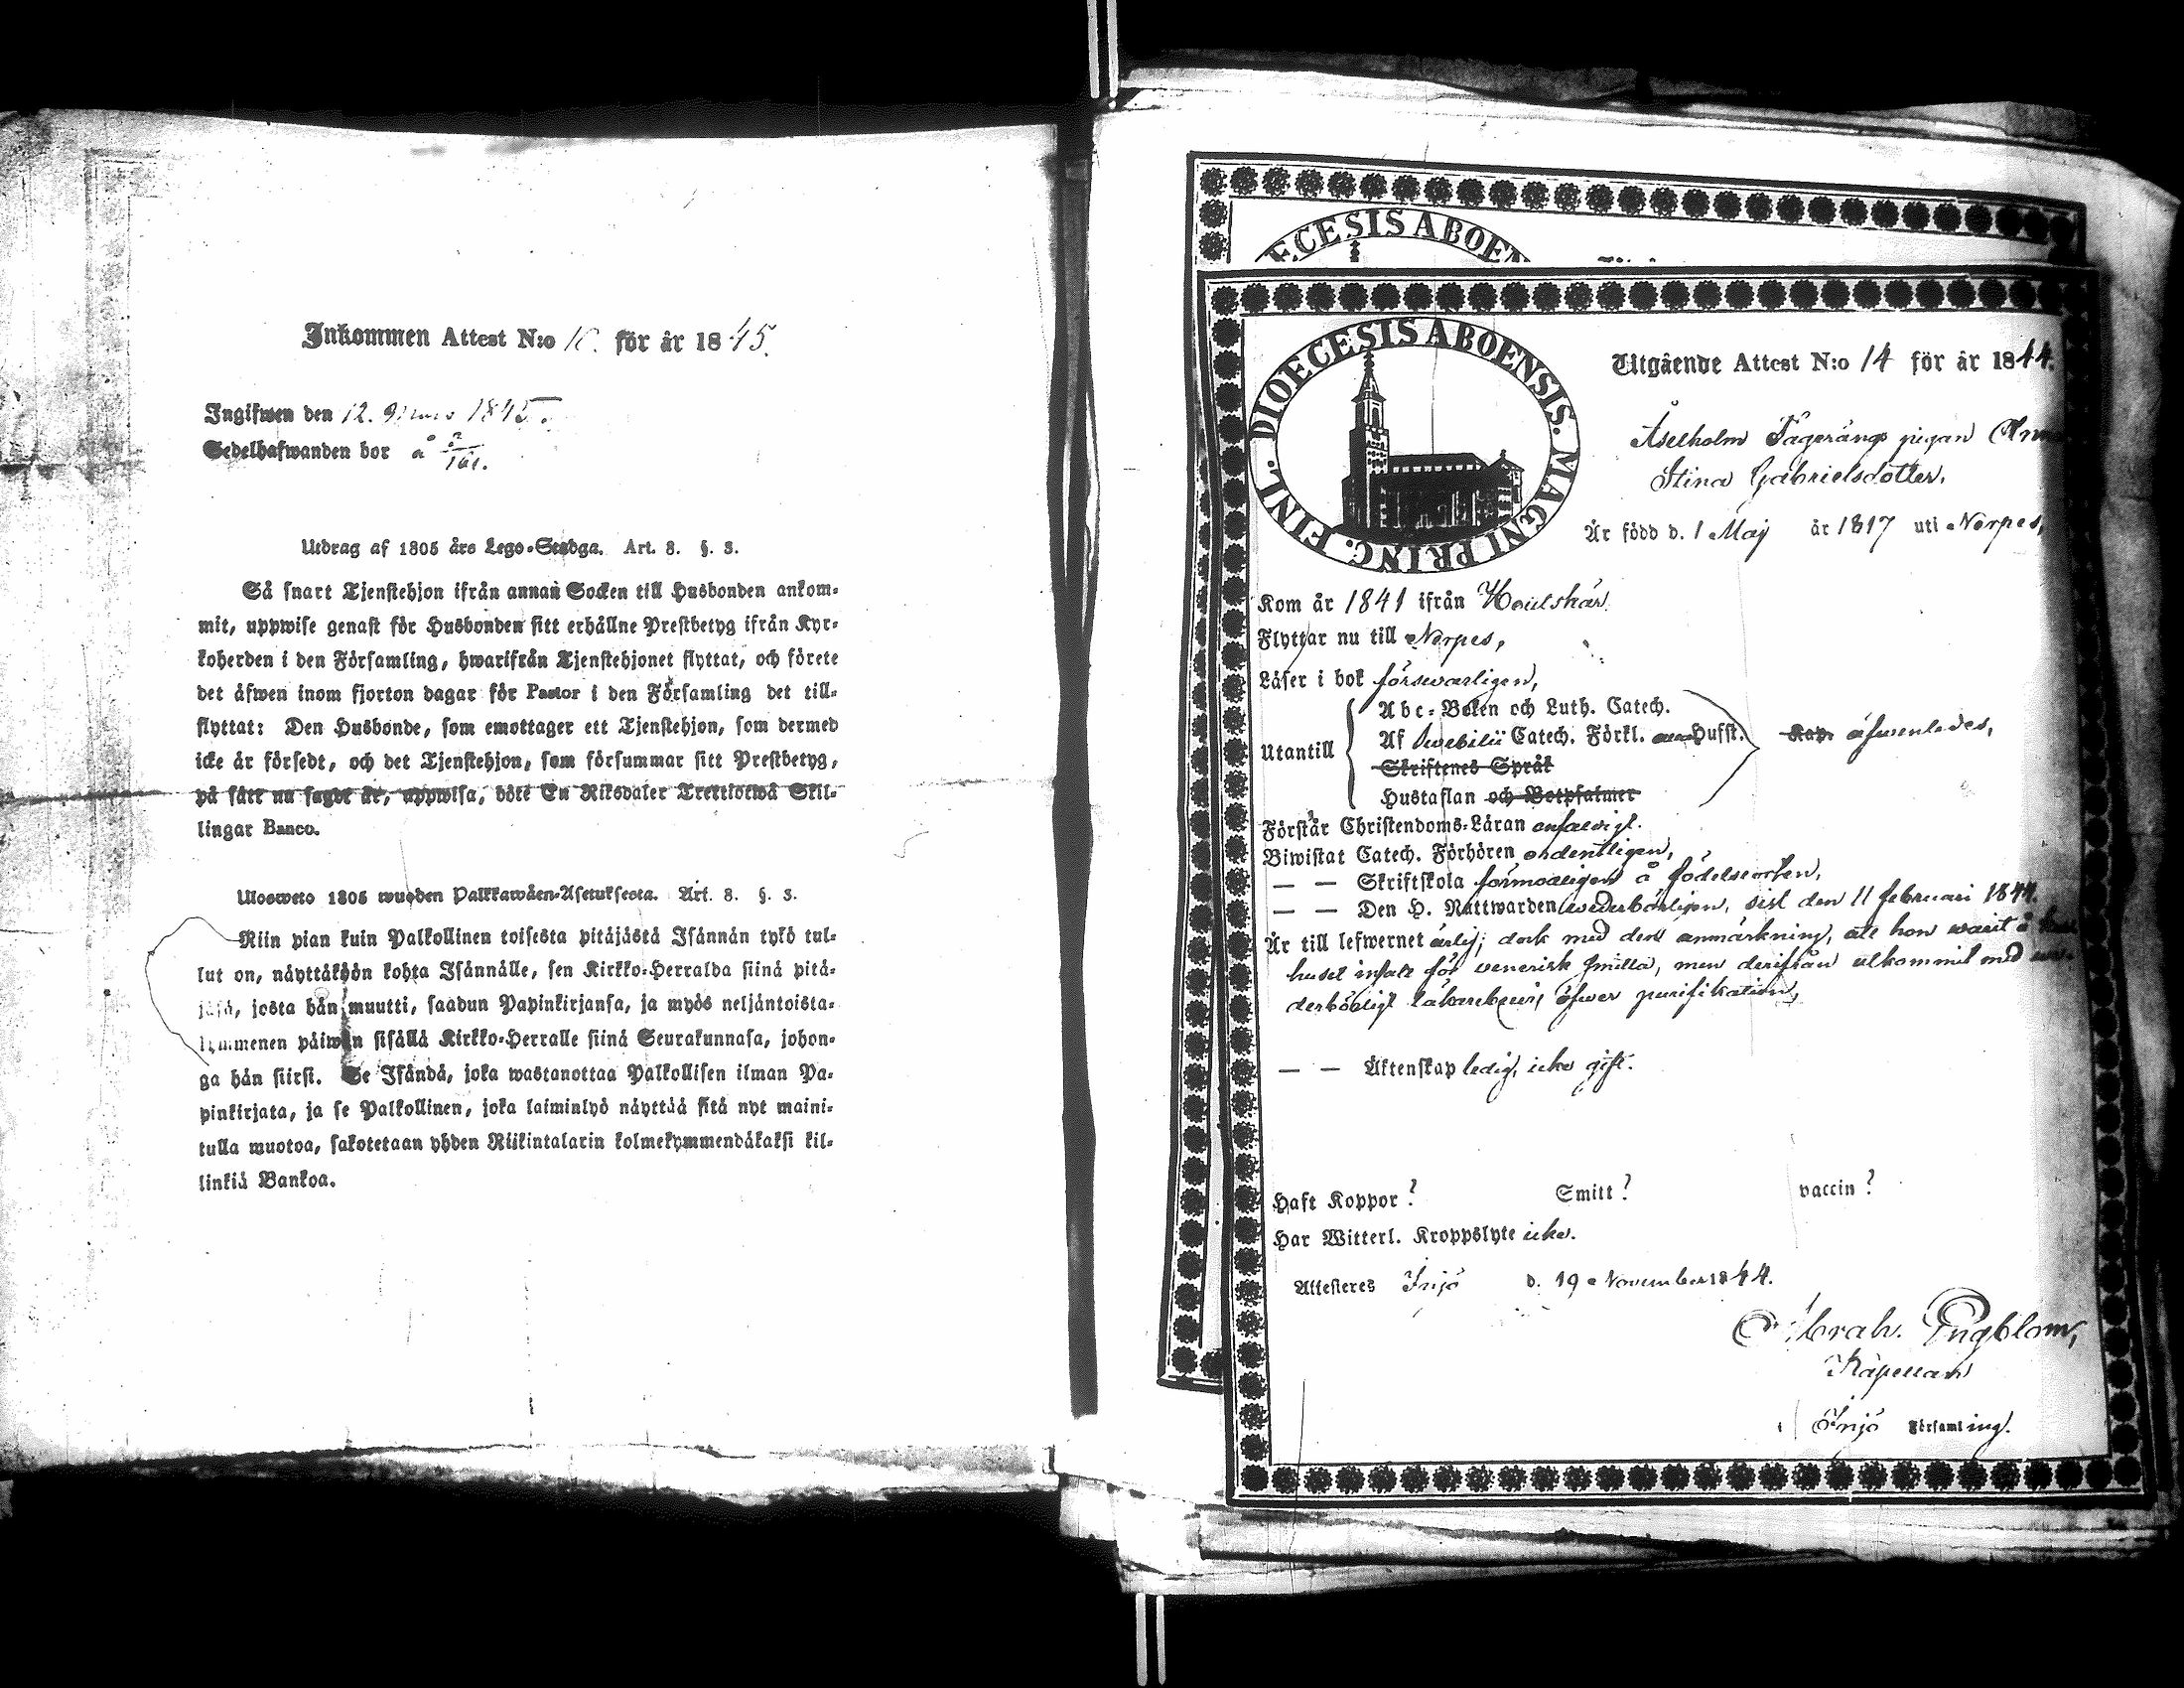 Inkommen Attest N:o 10. för år 1845.
Ingifwen den 12. Mars 1845.
Sedelhafwanden bor å
Utdrag af 1805 års Lego-Stadga. Art. 8. §. 3.
Så snart Tjenstehjon ifrån annan Socken till Husbonden ankom-
mit, uppwise genast för Husbonden sitt erhållne Prestbetyg ifrån Kyr-
koherden i den Församling, hwarifrån Tjenstehjonet flyttat, och förete
det äfwen inom fjorton dagar för Pastor i den Församling det till-
flyttat: Den Husbonde, som emottager ett Tjenstehjon, som dermed
icke är försedt, och det Tjenstehjon, som försummar sitt Prestbetyg,
på sätt nu sagdt är, uppwisa, böte En Riksdaler Trettiotwå Skil-
lingar Banco.
Ulosweto 1805 wuoden Palkkawäen-Asetuksesta. Art. 8. §. 3.
Niin pian kuin Palkollinen toisesta pitäjästä Isännän tykö tul-
lut on, näyttäköön kohta Isännälle, sen Kirkko-Herralda siinä pitä-
jäsä, josta hän muutti, saadun Papinkirjansa, ja myös neljäntoista-
kymmenen päiwän sisällä Kirkko-Herralle siinä Seurakunnasa, johon-
ga hän siirsi. Se Isändä, joka wastanottaa Palkollisen ilman Pa-
pinkirjata, ja se Palkollinen, joka laiminlyö näyttää sitä nyt maini-
tulla muotoa, sakotetaan yhden Riikintalarin kolmekymmendäkaksi kil-
linkiä Bankoa.
ECESIS ABOEN
DIOECESIS ABOENSIS. MAGNI PRINC. FINL.
Utgående Attest N:o 14 för år 1844.
Åselholm Fagerängs pigan Anna
Stina Gabrielsdotter,
Är född d. 1 Maj år 1817 uti Nerpes,
Kom år 1841 ifrån Houtskär
Flyttar nu till Nerpes,
Läser i bok förswarligen,
Utantill
Abc-Boken och Luth. Catech.
Af Swebilii Catech. Förkl. Husst.
Skriftenes Språk
Hustaflan och Botpsalmer
Kap. äfwenledes,
Förstår Christendoms-Läran enfaldigt.
Biwistat Catech. Förhören ordentligen,
— — Skriftskola förmodligen å födelseorten,
— — Den H. Nattwarden wederbörligen, sist den 11 februari 1844.
Är till lefwernet ärlig; dock med den anmärkning, att hon warit å
huset intagen för venerisk smitta, men derifrån utkommit med we-
derbörligt läkarebewis öfwer purifikation,
— — Äktenskap ledig, icke gift.
Haft Koppor? Smitt? vaccin?
Har Witterl. Kroppslyte icke.
Attesteres Iniö d. 19 November 1844.
Abrah. Engblom,
Kapellan
i Iniö Församling.